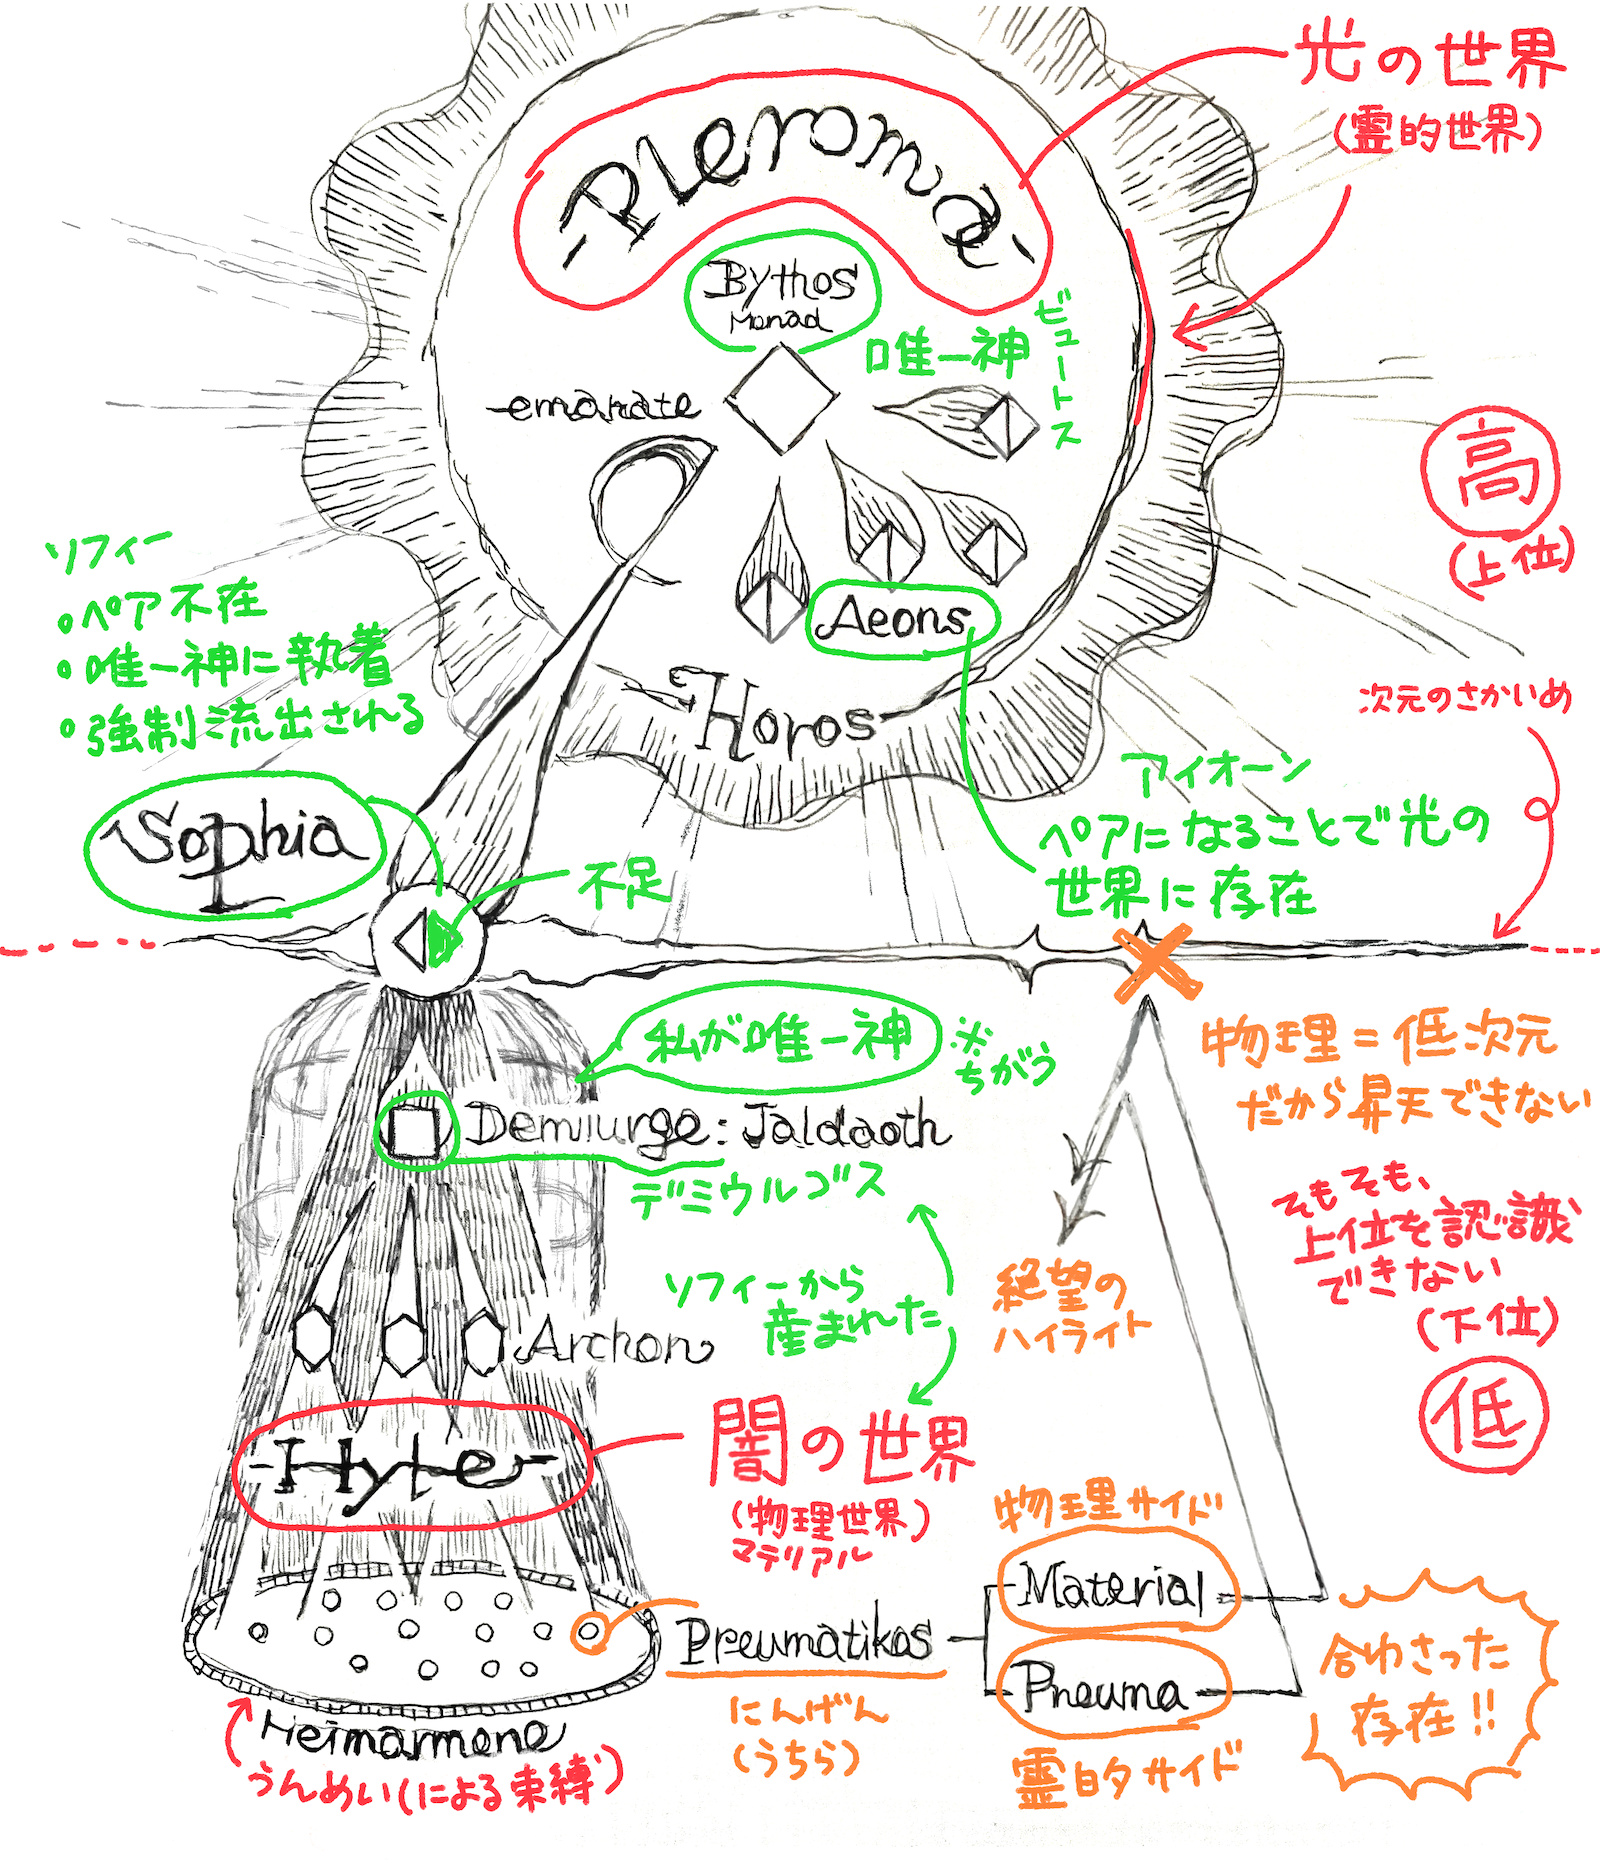 光の世界
(霊的世界)
-Pleroma-
Bythos
Monad
唯一神
ビュートス
emanate
高
(上位)
ソフィー
・ペア不在
・唯一神に執着
・強制流出される
Aeons
Horos
次元のさかいめ
アイオーン
ペアになることで光の
世界に存在
Sophia
不足
私が唯一神
※
ちがう
物理=低次元
だから昇天できない
Demiurge: Jaldaoth
デミウルゴス
そもそも、
上位を認識
できない
(下位)
低
ソフィーから
産まれた
絶望の
ハイライト
Archon
-Hyle-
闇の世界
(物理世界)
マテリアル
物理サイド
Material
Pneumatikos
にんげん
(うちら)
Pneuma
霊的サイド
合わさった
存在!!
Heimarmene
うんめい(による束縛)